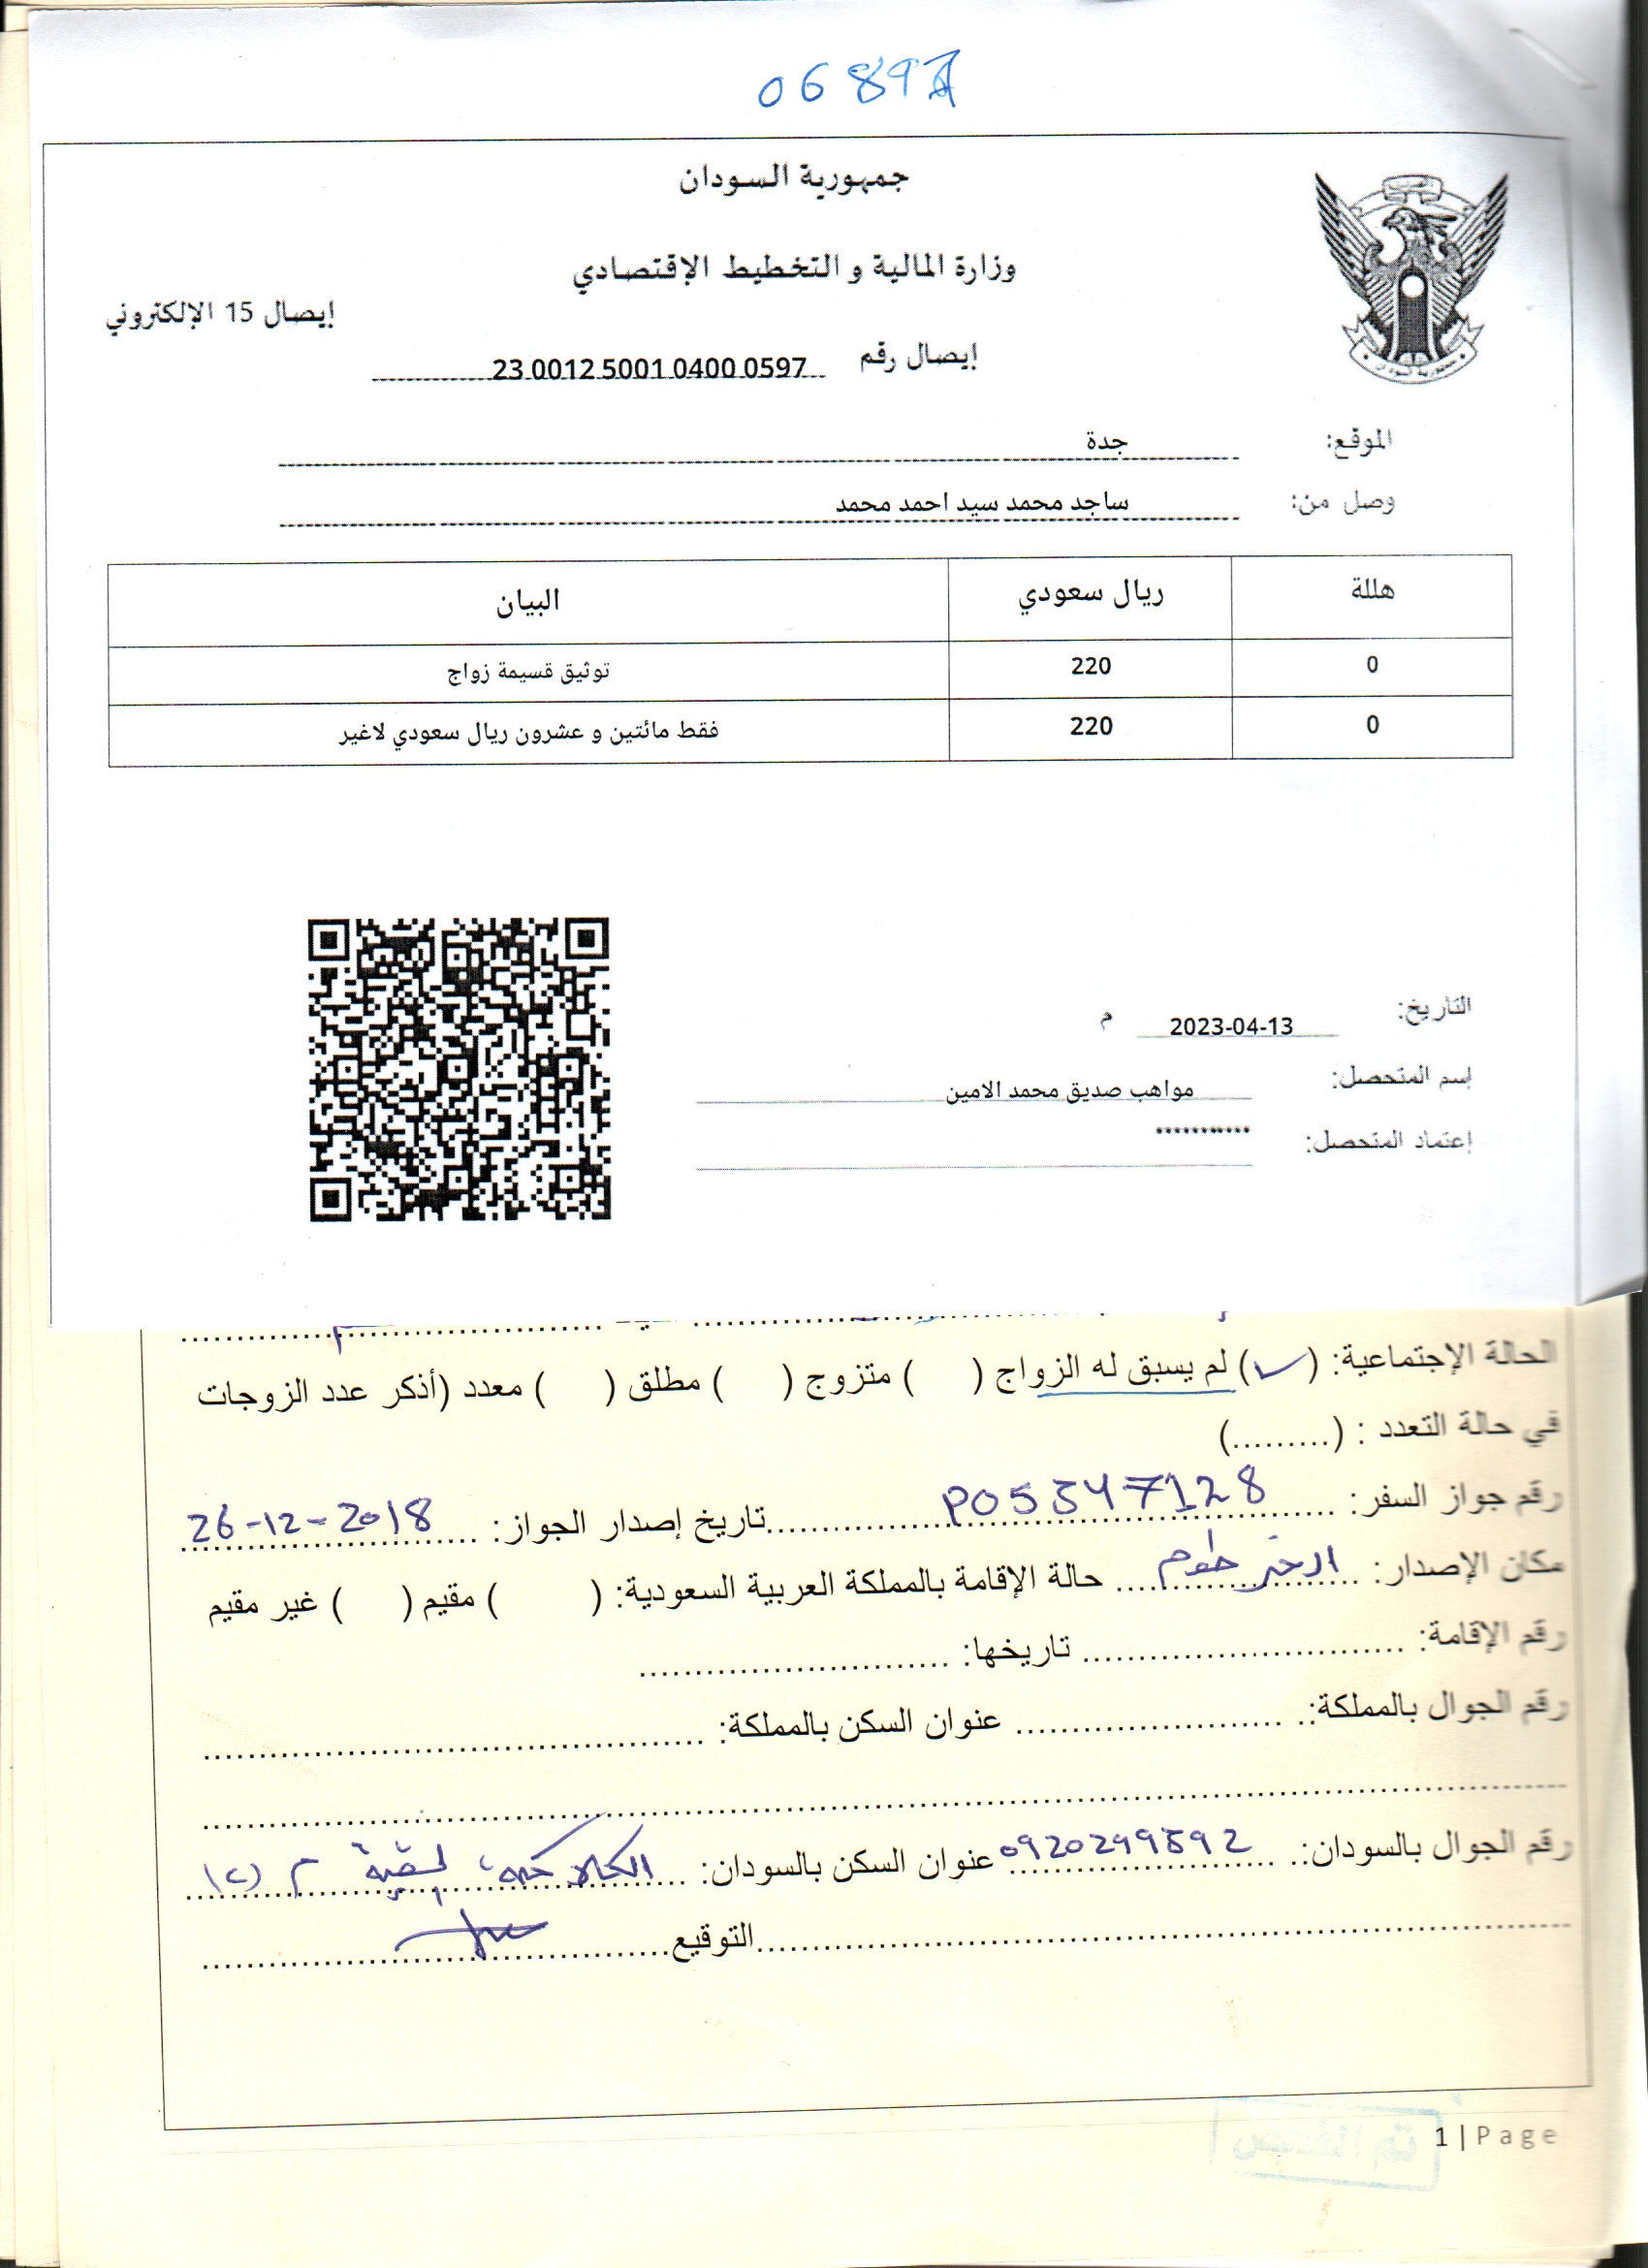 جمهورية السودان
وزارة المالية و التخطيط الإقتصادي
إيصال 15 الإلكتروني
إيصال رقم 23 0012 5001 0400 0597
الموقع: جدة
وصل من: ساجد محمد سيد احمد محمد
هللة ريال سعودي البيان
0 220 توثيق قسيمة زواج
0 220 فقط مائتين و عشرون ريال سعودي لاغير
التاريخ: 2023-04-13 م
إسم المتحصل: مواهب صديق محمد الامين
إعتماد المتحصل: ***********
الحالة الإجتماعية: (✓) لم يسبق له الزواج ( ) متزوج ( ) مطلق ( ) معدد (أذكر عدد الزوجات
في حالة التعدد : (.........)
رقم جواز السفر: P05547128 تاريخ إصدار الجواز: 26-12-2018
مكان الإصدار: الخرطوم حالة الإقامة بالمملكة العربية السعودية: ( ) مقيم ( ) غير مقيم
رقم الإقامة: تاريخها:
رقم الجوال بالمملكة: عنوان السكن بالمملكة:
رقم الجوال بالسودان: 0920299592 عنوان السكن بالسودان: الكلاكلة
التوقيع
1 | Page
تم الفحص